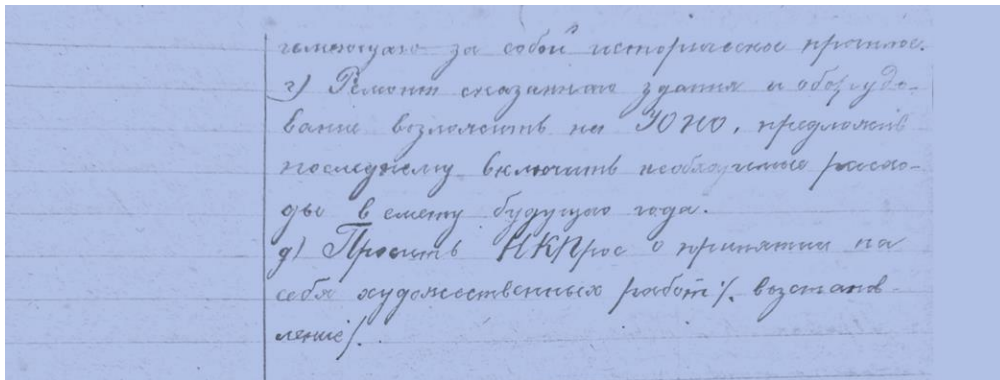 имеющую за собой историческое прошлое.
г) Ремонт сказаннаго здания и оборудо-
вание возложить на УОНО, предложив
последнему включить необходимые расхо-
ды в смету будущаго года.
д) Просить НКПрос о принятии на
себя художественных работ /. возстанов-
ление /.